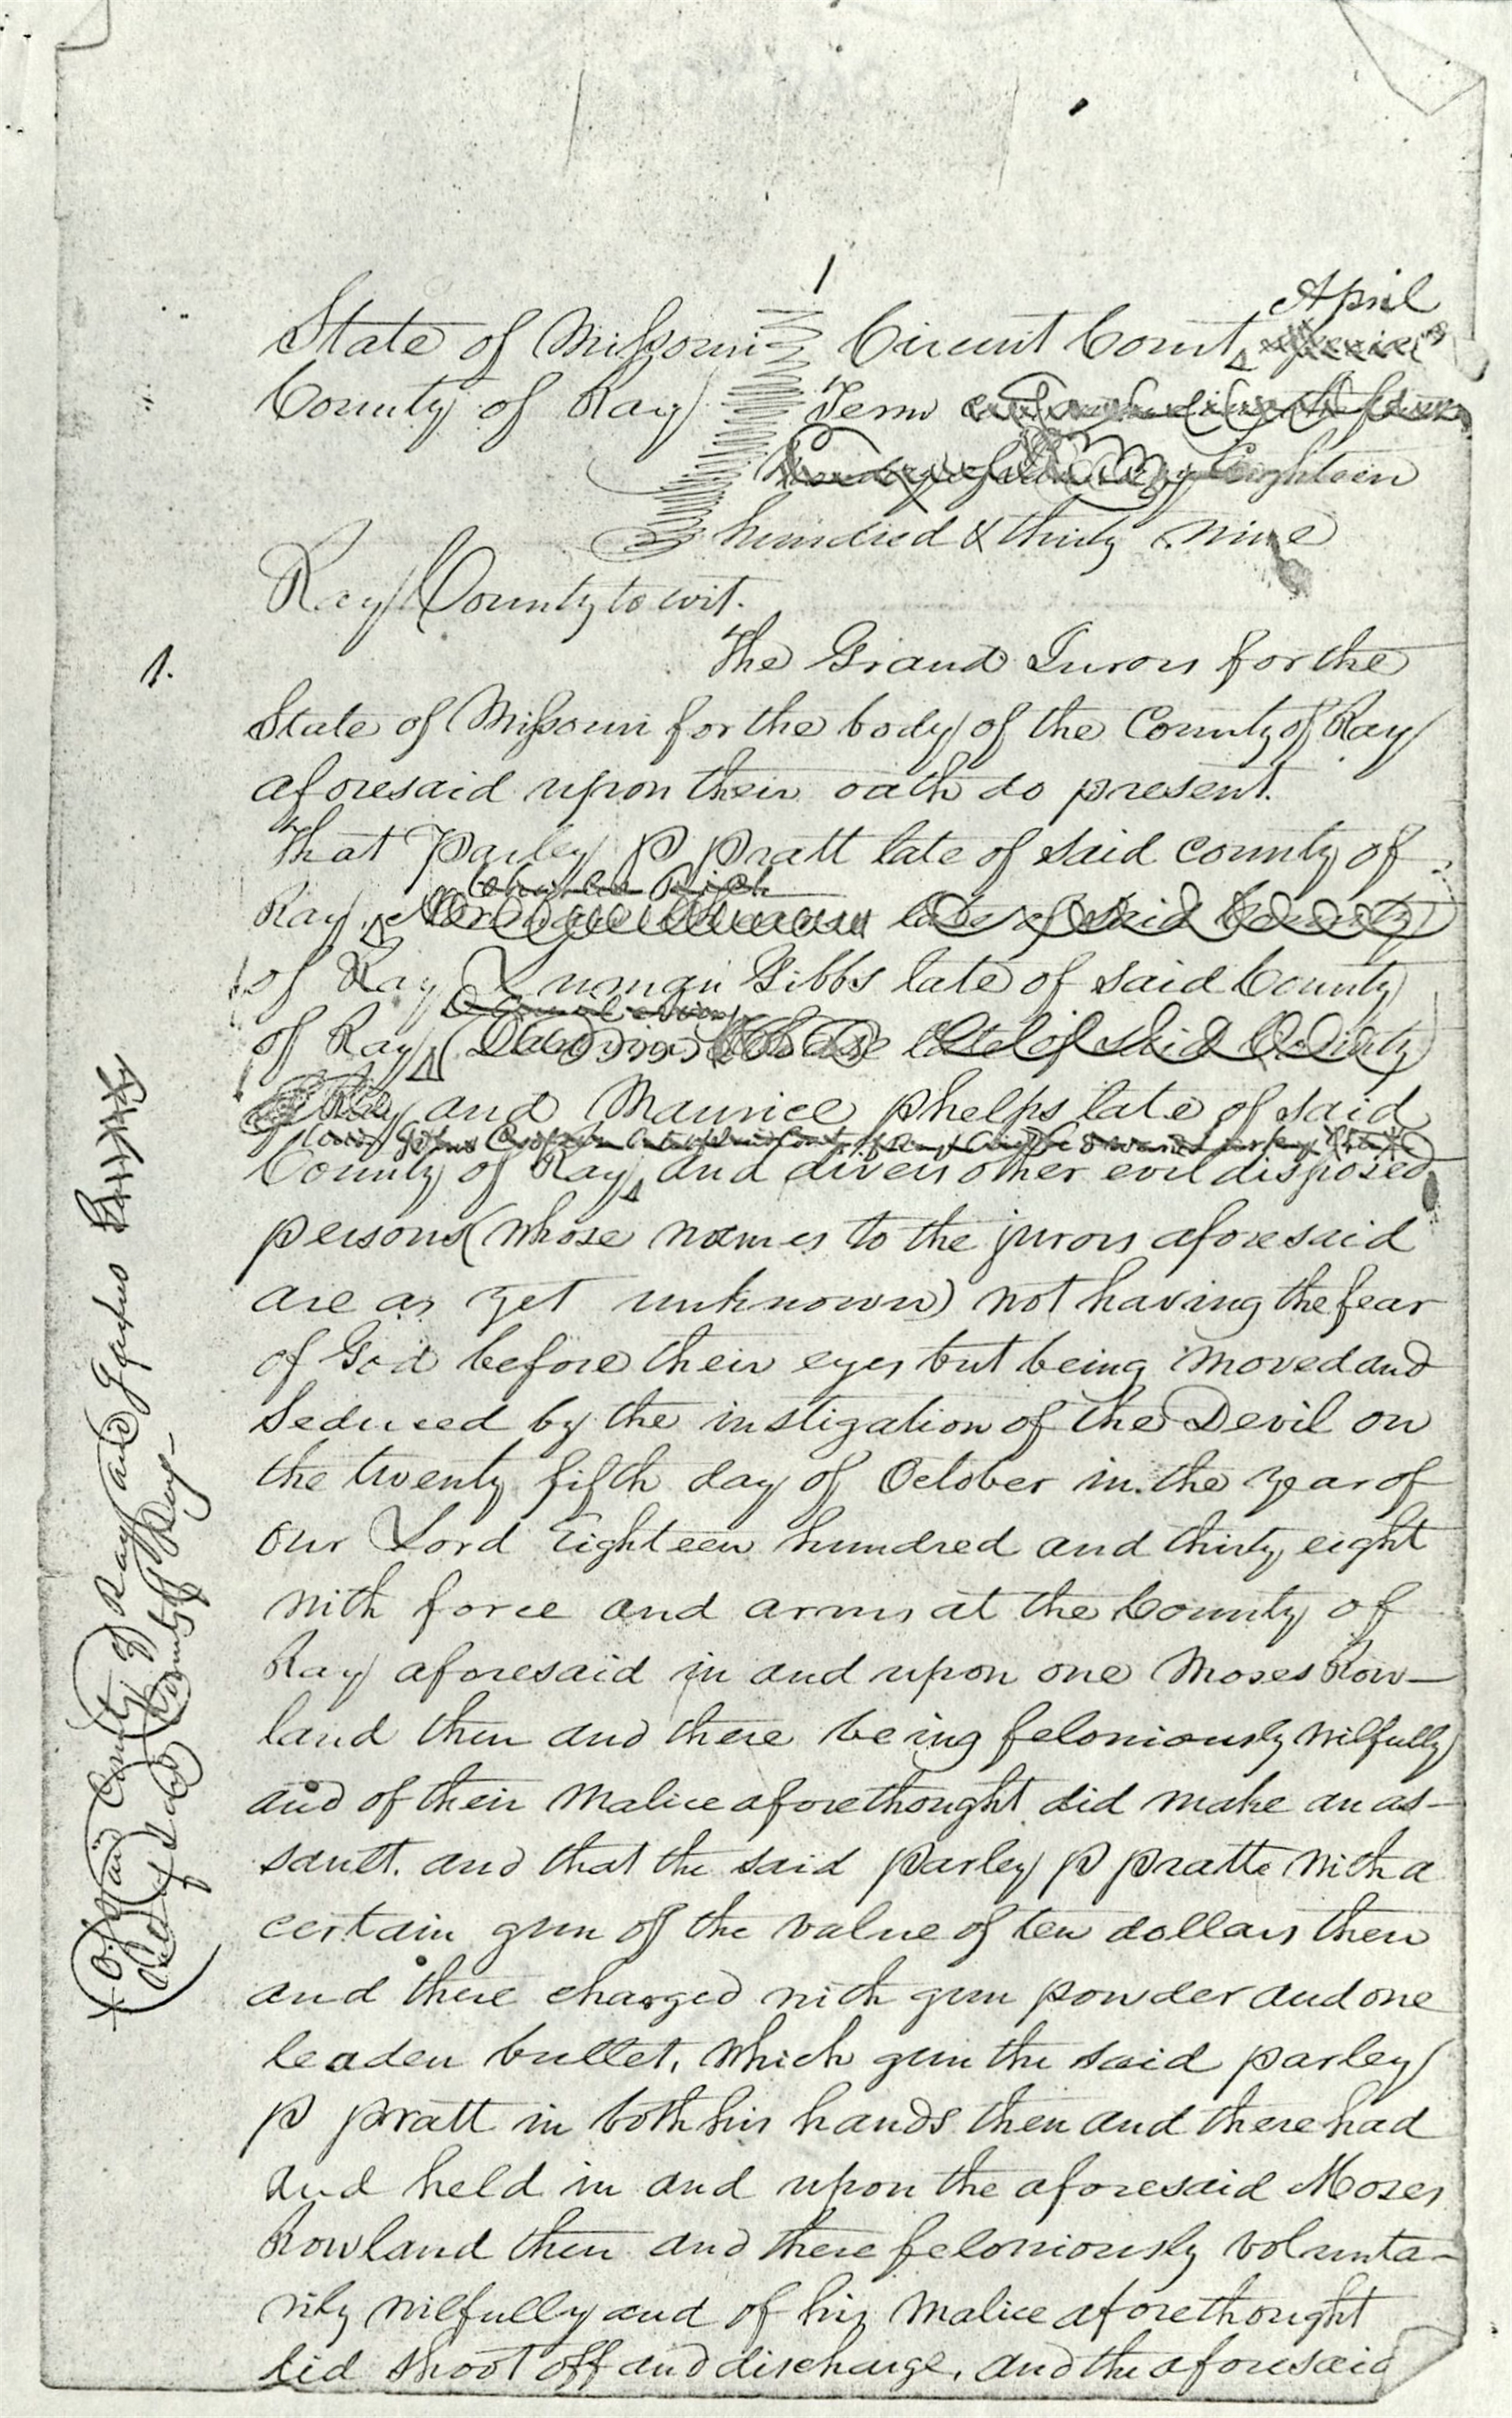 1
April
State of Missouri Circuit Court
County of Ray Term
Eighteen
hundred & thirty nine
Ray County to wit.
1. The Grand Jurors for the
State of Missouri for the body of the County of Ray
aforesaid upon their oath do present.
that Parley P Pratt late of said county of
Charles Rich
Ray, late of said County
of Ray Luman Gibbs late of said County
of Ray late of said County
of Ray and Maurice phelps late of said
County of Ray, and divers other evil disposed
persons (whose names to the jurors aforesaid
are as yet unknown) not having the fear
of God before their eyes but being moved and
Seduced by the instigation of the Devil on
the twenty fifth day of October in the year of
our Lord Eighteen hundred and thirty eight
with force and arms at the County of
Ray aforesaid in and upon one Moses Row-
land then and there being feloniously wilfully
and of their Malice aforethought did make an as-
sault. and that the said Parley P Pratt with a
certain gun of the value of ten dollars then
and there charged with gun powder and one
leaden bullet, which gun the said parley
P Pratt in both his hands then and there had
and held in and upon the aforesaid Moses
Rowland then and there feloniously volunta-
rily wilfully and of his Malice aforethought
did shoot off and discharge, and the aforesaid
County of Ray and
late of said County of Ray-